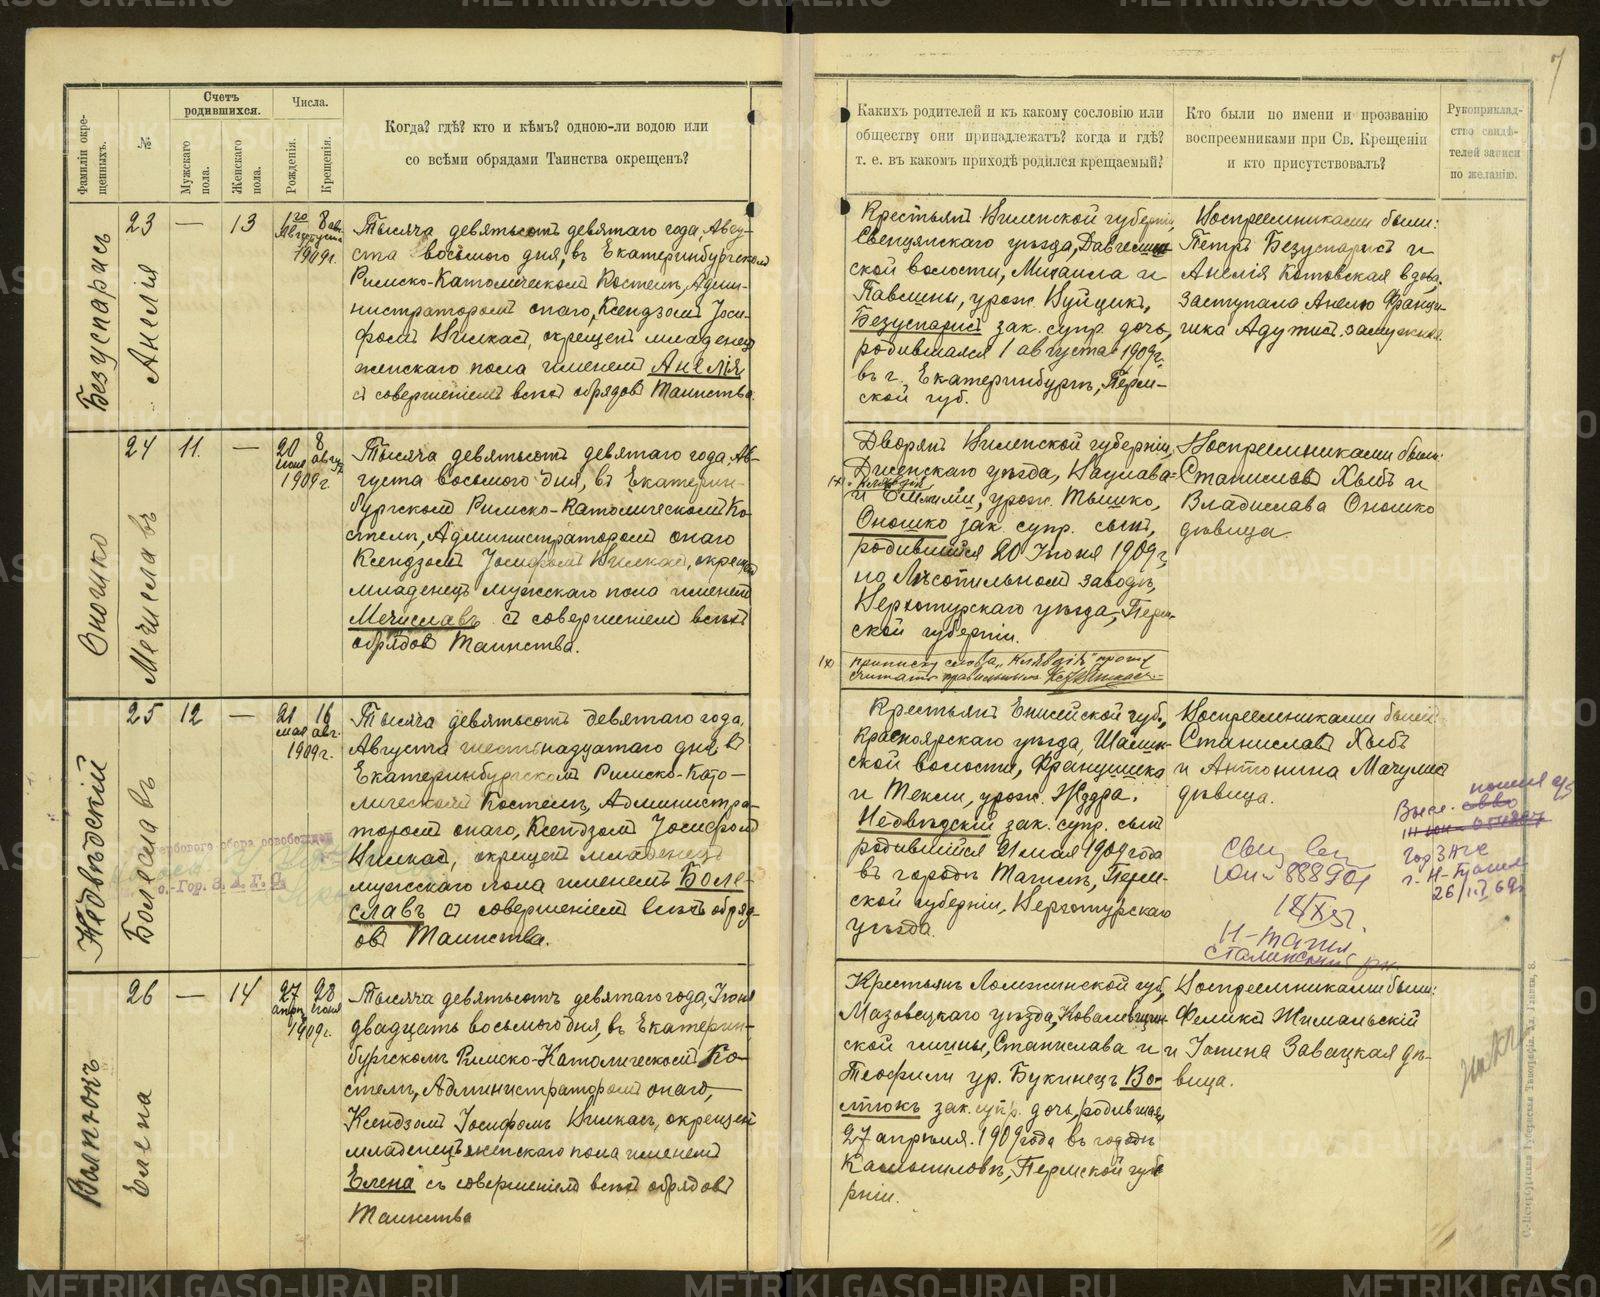 7
Фамиліи окре-
щенныхъ.
№
Счетъ
родившихся.
Мужскаго
пола.
Женскаго
пола.
Числа.
Рожденія.
Крещенія.
Когда? гдѣ? кто и кѣмъ? одною-ли водою или
со всѣми обрядами Таинства окрещенъ?
Какихъ родителей и къ какому сословію или
обществу они принадлежатъ? когда и гдѣ?
т. е. въ какомъ приходѣ родился крещаемый?
Кто были по имени и прозванію
воспреемниками при Св. Крещеніи
и кто присутствовалъ?
Рукоприклад-
ство свидѣ-
телей записи
по желанію.
Безуспарисъ
Анелія
23 — 13
1го 8 авг.
Августа
1909г.
Тысяча девятьсотъ девятаго года, Авгу-
ста восьмого дня, въ Екатеринбургскомъ
Римско-Католическомъ Костелѣ, Адми-
нистраторомъ онаго, Ксендзомъ Іоси-
фомъ Вилкасъ, окрещенъ младенецъ
женскаго пола именемъ Анелія
съ совершеніемъ всѣхъ обрядовъ Таинства.
Крестьянъ Виленской губерніи,
Свенцянскаго уѣзда, Давгелиш-
ской волости, Михаила и
Павлины, урож. Вуйцикъ,
Безуспарисъ зак. супр. дочь,
родившаяся 1 августа 1909г.
въ г. Екатеринбургѣ, Перм-
ской губ.
Воспреемниками были:
Петръ Безуспарисъ и
Анелія Котовская вдова,
заступала Анелю Франци-
шка Адутист. замужняя.
Оношко
Мечиславъ
24 11. —
20 8
Іюня август.
1909г.
Тысяча девятьсотъ девятаго года, Ав-
густа восьмого дня, въ Екатерин-
бургскомъ Римско-Католическомъ Ко-
стелѣ, Администраторомъ онаго
Ксендзомъ Іосифомъ Вилкасъ, окрещенъ
младенецъ мужскаго пола именемъ
Мечиславъ съ совершеніемъ всѣхъ
обрядовъ Таинства.
Дворянъ Виленской губерніи,
Дисенскаго уѣзда, Вацлава=
1х) Клявдія
и Эмиліи, урож. Тышко,
Оношко зак. супр. сынъ,
родившійся 20 Іюня 1909г.
на Лѣсопильномъ заводѣ,
Верхотурскаго уѣзда, Перм-
ской губерніи.
1х) приписку слова „Клявдія" прошу
считать правильнымъ
Воспреемниками были:
Станиславъ Хыбъ и
Владислава Оношко
дѣвица.
Недвѣдскій
Болеславъ
25 12 —
21 16
мая авг.
1909г.
Тысяча девятьсотъ девятаго года,
Августа шестьнадцатаго дня, въ
Екатеринбургскомъ Римско-Като-
лическомъ Костелѣ, Администра-
торомъ онаго, Ксендзомъ Іосифомъ
Вилкас, окрещенъ младенецъ
мужскаго пола именемъ Боле-
славъ съ совершеніемъ всѣхъ обряд-
овъ Таинства.
гербового сбора освобожден
о.-Гор. З. А. Г. С.
Крестьянъ Енисейской губ.,
Красноярскаго уѣзда, Шалин-
ской волости, Францишка
и Теклі, урож. Жддра,
Недвѣдскій зак. супр. сынъ
родившійся 21 мая 1909 года
въ городѣ Тагилѣ, Перм-
ской губерніи, Верхотурскаго
уѣзда.
Воспреемниками были:
Станиславъ Хыбъ
и Антонина Мачулис
дѣвица.
Гор ЗАГС
г. Н-Тагил
26/
Н-Тагил
Сталинский рн.
Волпюкъ
Елена
26 — 14
27 28
апрѣ. Іюня
1909г.
Тысяча девятьсотъ девятаго года, Іюня
двадцать восьмого дня, въ Екатерин-
бургскомъ Римско-Католическомъ Ко-
стелѣ, Администраторомъ онаго,
Ксендзомъ Іосифомъ Вилкасъ, окрещенъ
младенецъ женскаго пола именемъ
Елена съ совершеніемъ всѣхъ обрядовъ
Таинства
Крестьянъ Ломжинской губ,
Мазовецкаго уѣзда, Ковалевщин-
ской гмины, Станислава и
Теофили ур. Букинецъ Во-
лпюкъ зак. супр. дочь, родившая.
27 апрѣля. 1909 года въ городѣ
Камышловѣ, Пермской губе
рніи.
Воспреемниками были:
Феликсъ Жимальскій
и Іонина Завацкая дѣ-
вица.
METRIKI.GASO-URAL.RU